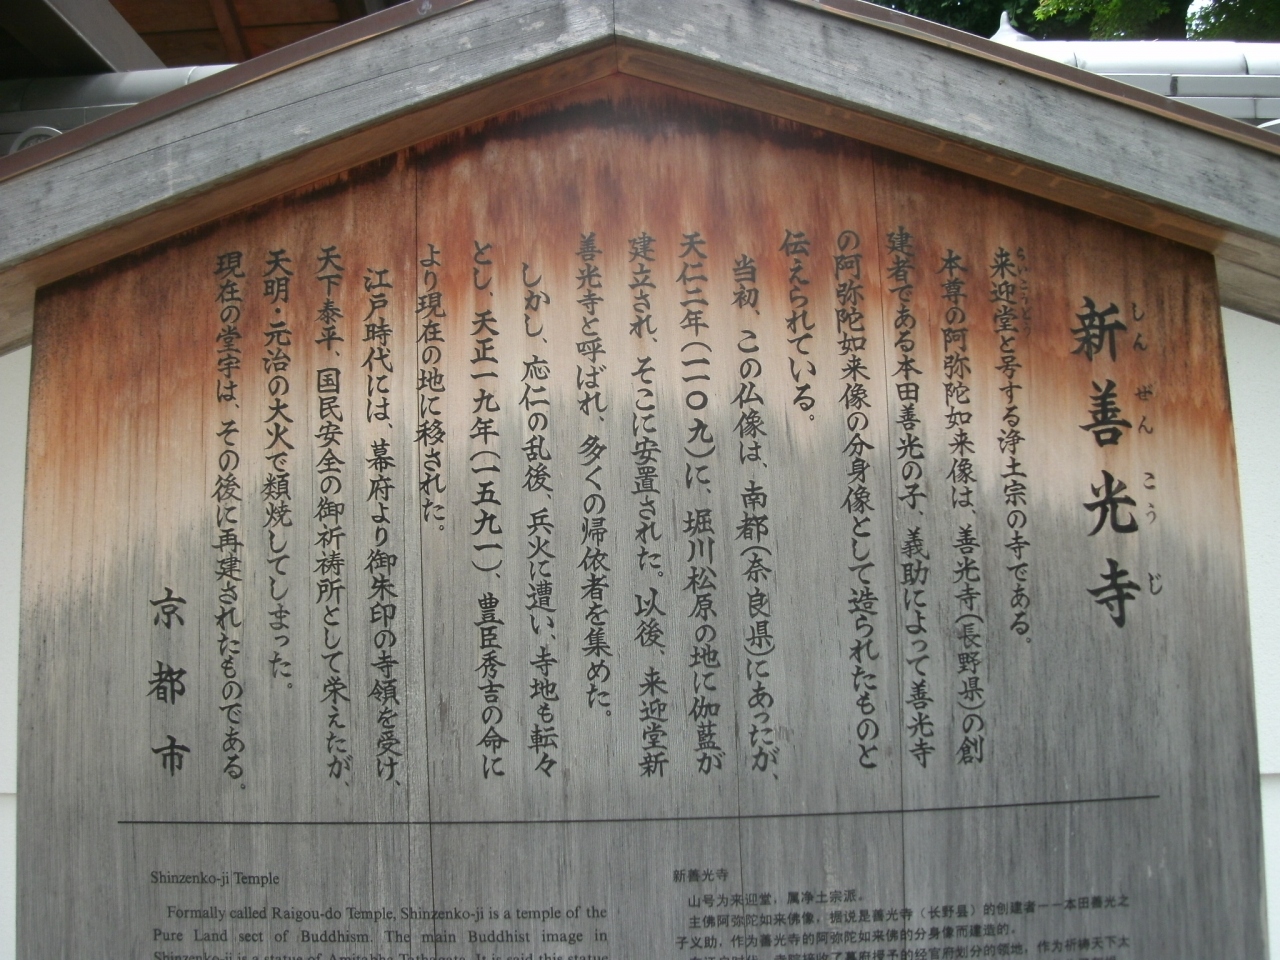 新善光寺
しんぜんこうじ
らいこうどう
来迎堂と号する浄土宗の寺である。
本尊の阿弥陀如来像は、善光寺(長野県)の創
建者である本田善光の子、義助によって善光寺
の阿弥陀如来像の分身像として造られたものと
伝えられている。
当初、この仏像は、南都(奈良県)にあったが、
天仁二年(一一〇九)に、堀川松原の地に伽藍が
建立され、そこに安置された。以後、来迎堂新
善光寺と呼ばれ、多くの帰依者を集めた。
しかし、応仁の乱後、兵火に遭い、寺地も転々
とし、天正一九年(一五九一)、豊臣秀吉の命に
より現在の地に移された。
江戸時代には、幕府より御朱印の寺領を受け、
天下泰平、国民安全の御祈祷所として栄えたが、
天明・元治の大火で類焼してしまった。
現在の堂宇は、その後に再建されたものである。
京都市
Shinzenko-ji Temple
Formally called Raigou-do Temple, Shinzenko-ji is a temple of the
Pure Land sect of Buddhism. The main Buddhist image in
Shinzenko-ji is a statue of Amitabha Tathagata. It is said this statue
新善光寺
山号为来迎堂，属净土宗派。
主佛阿弥陀如来佛像，据说是善光寺（长野县）的创建者一一本田善光之
子义助，作为善光寺的阿弥陀如来佛的分身像而建造的。
在江户时代，寺院接收了幕府授予的经官府划分的领地，作为祈祷天下太